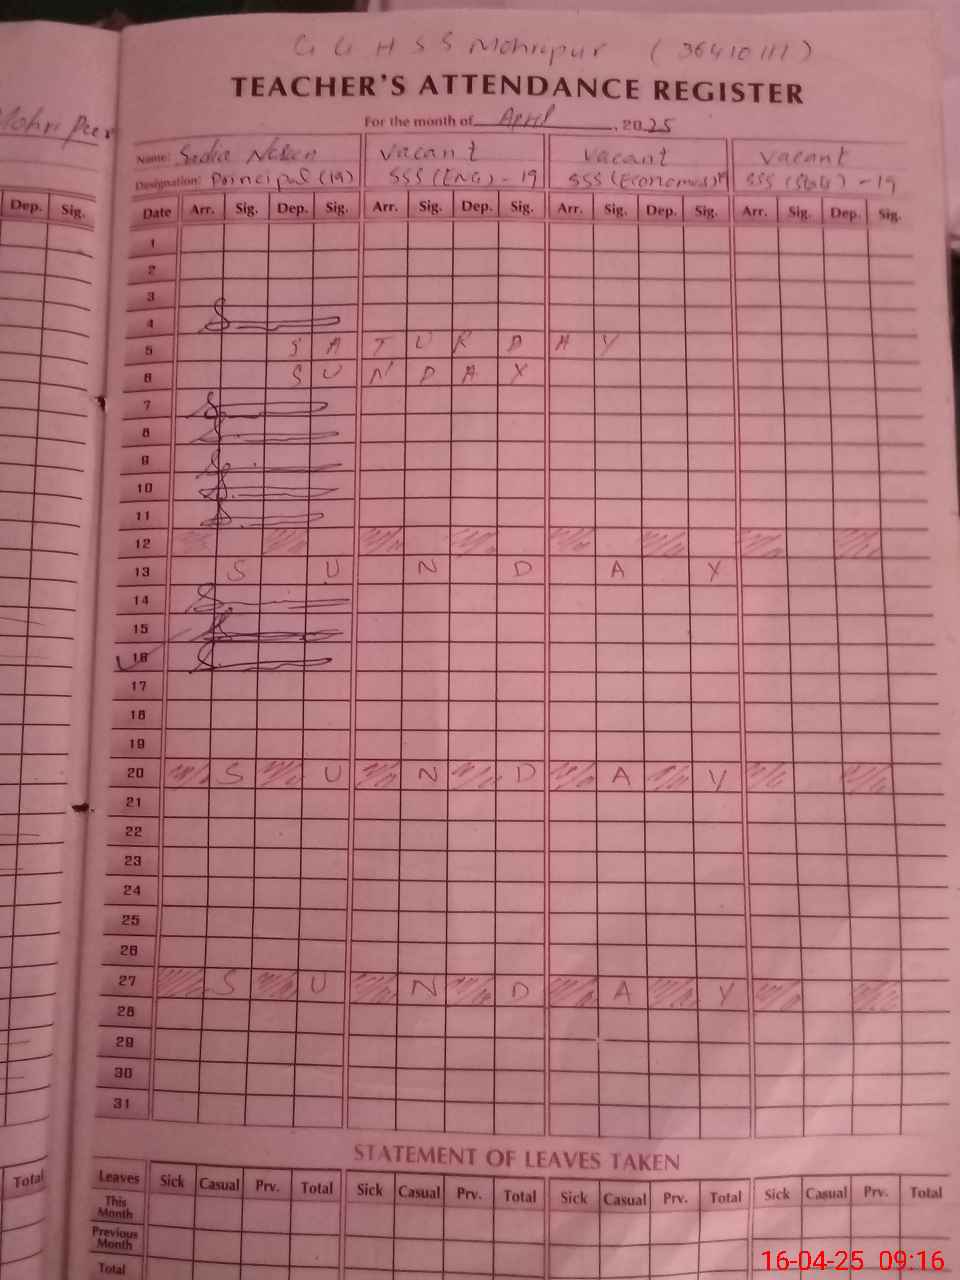 G G H S S Mohripur ( 36410111 )
TEACHER'S ATTENDANCE REGISTER
For the month of April , 2025
Name: Sadia vacant vacant vacant
Designation: Principal (19) SSS (ENG) - 19 SSS (Economics) 19 SSS (Stat) - 19
Dep. Sig. Date Arr. Sig. Dep. Sig. Arr. Sig. Dep. Sig. Arr. Sig. Dep. Sig. Arr. Sig. Dep. Sig.
1
2
3
4
5 S A T U R D A Y
6 S U N D A Y
7
8
9
10
11
12
13 S U N D A Y
14
15
16
17
18
19
20 S U N D A Y
21
22
23
24
25
26
27 S U N D A Y
28
29
30
31
STATEMENT OF LEAVES TAKEN
Total Leaves Sick Casual Prv. Total Sick Casual Prv. Total Sick Casual Prv. Total Sick Casual Prv. Total
This Month
Previous Month
Total
16-04-25 09:16